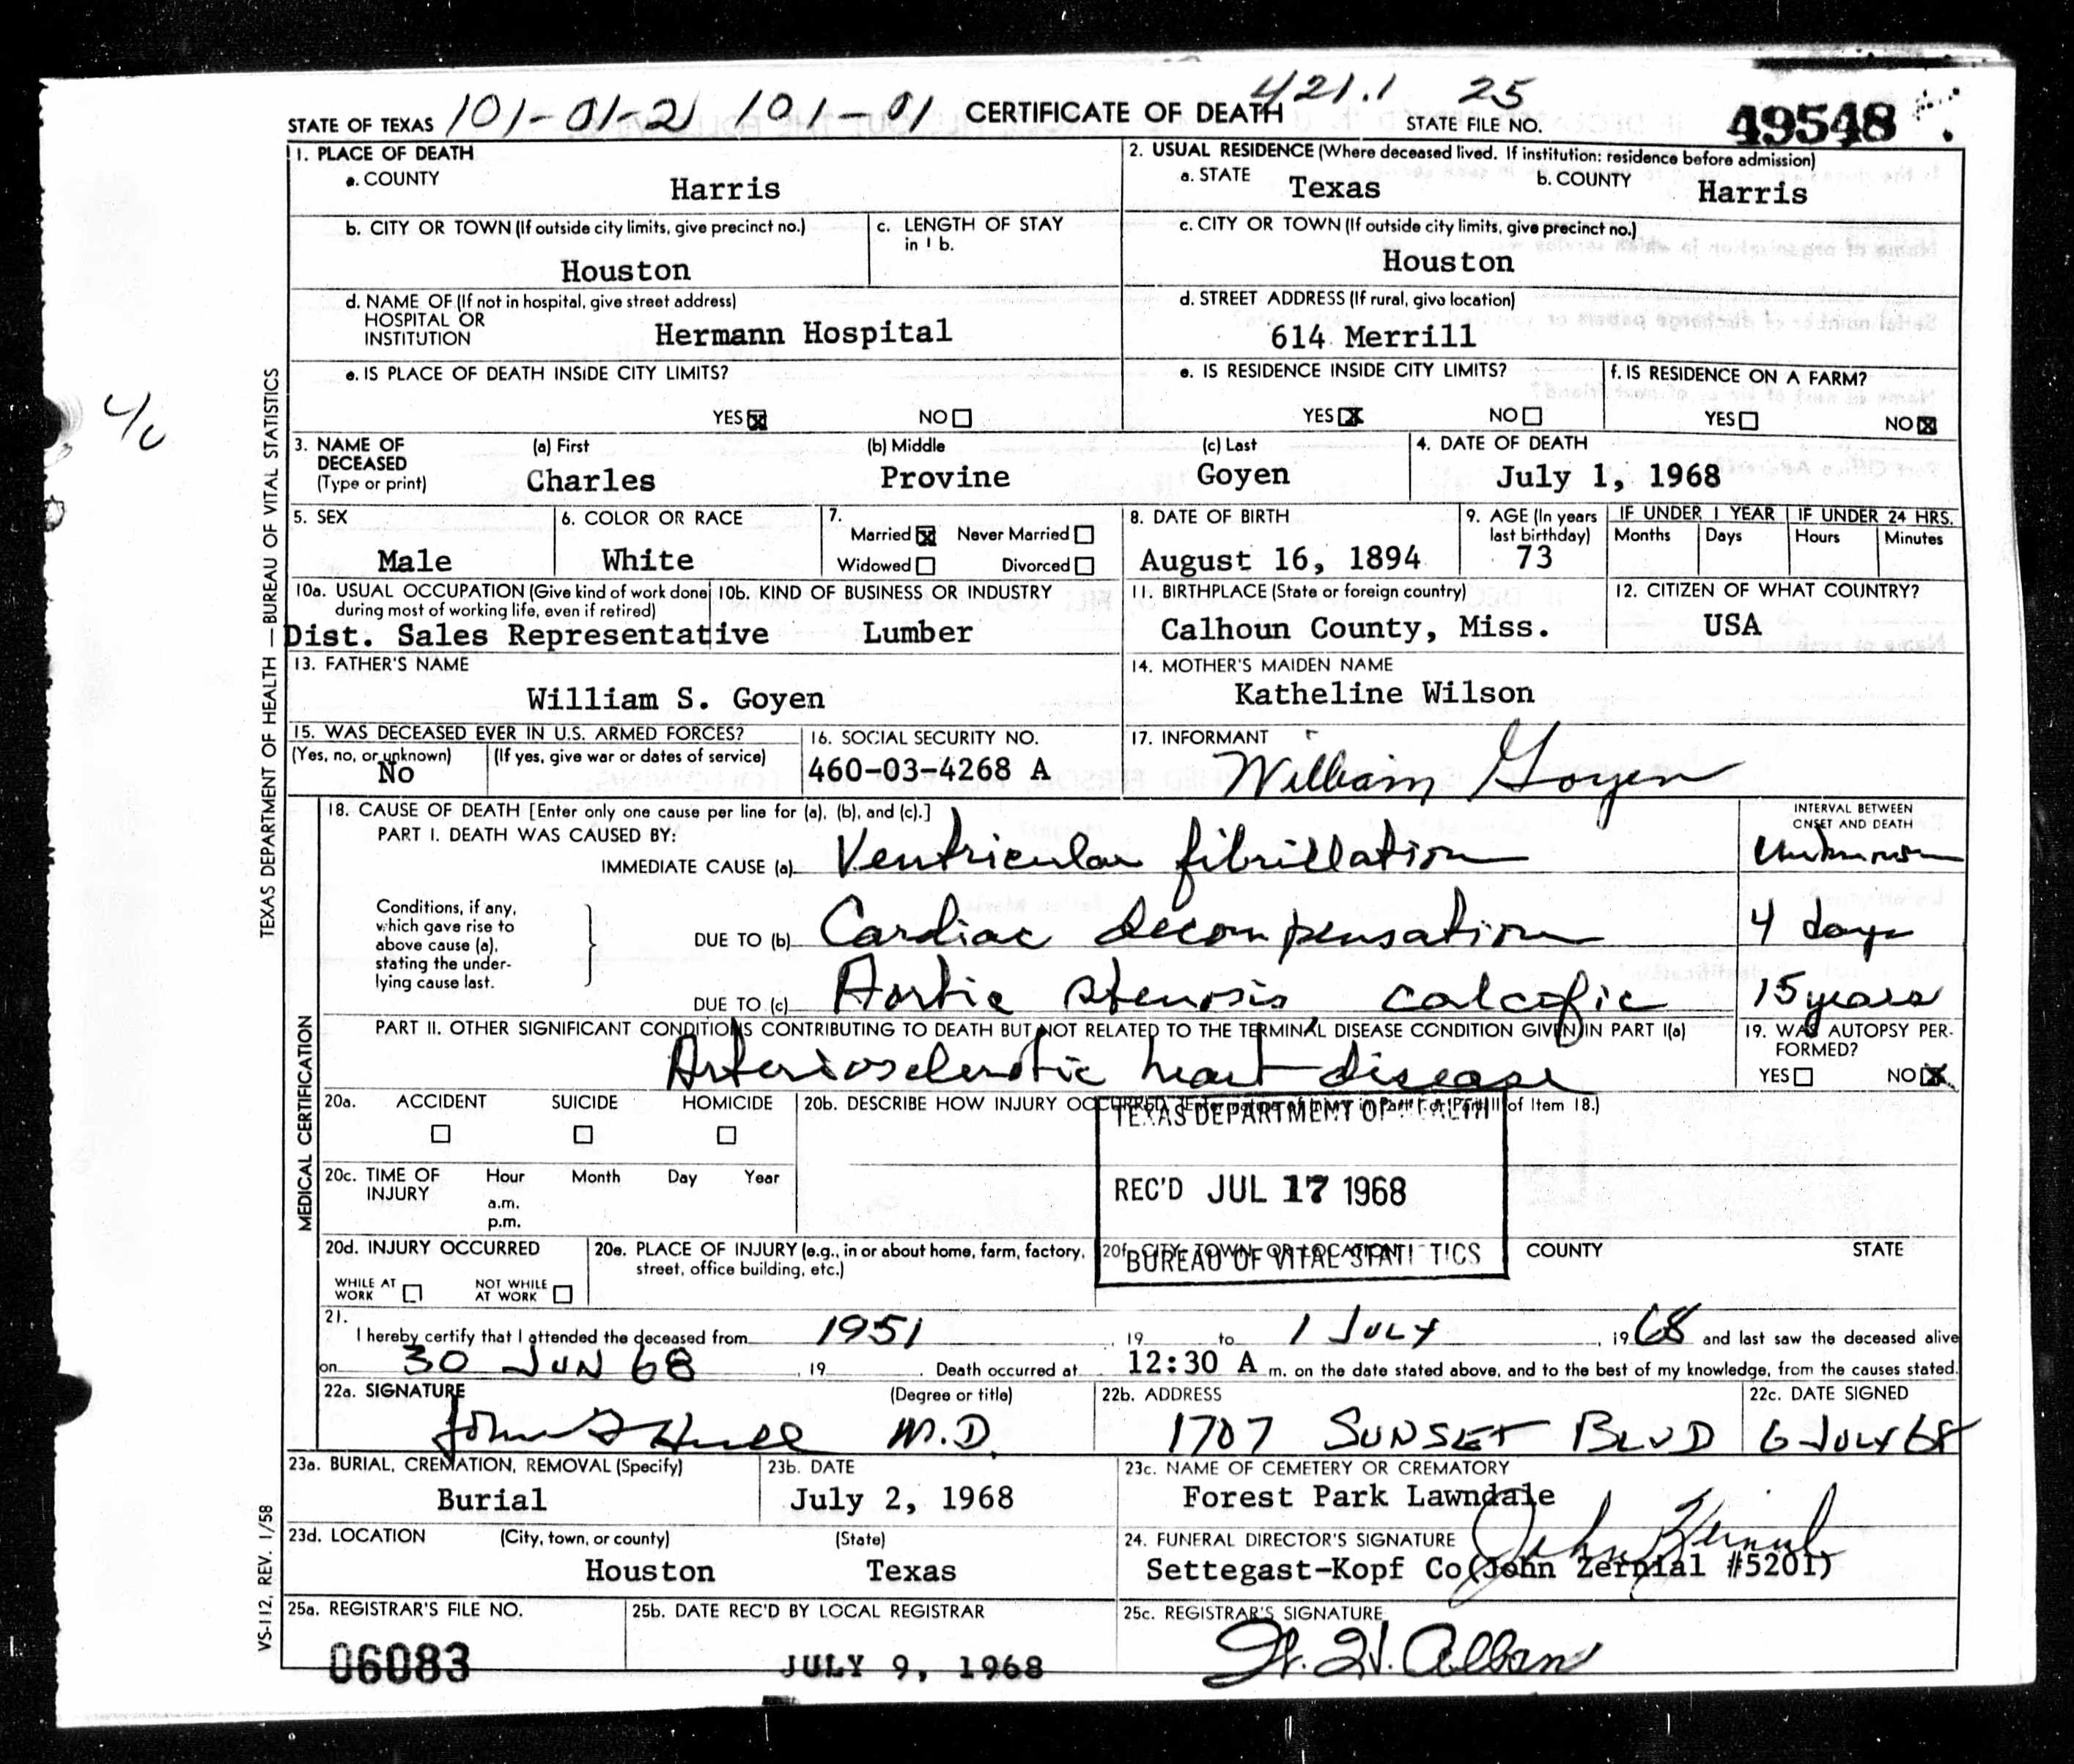 STATE OF TEXAS 101-01-2 101-01 CERTIFICATE OF DEATH 421.1 25 STATE FILE NO. 49548
1. PLACE OF DEATH
a. COUNTY Harris
2. USUAL RESIDENCE (Where deceased lived. If institution: residence before admission)
a. STATE Texas b. COUNTY Harris
b. CITY OR TOWN (If outside city limits, give precinct no.) Houston
c. LENGTH OF STAY in 1 b.
c. CITY OR TOWN (If outside city limits, give precinct no.) Houston
d. NAME OF (If not in hospital, give street address)
HOSPITAL OR
INSTITUTION Hermann Hospital
d. STREET ADDRESS (If rural, give location)
614 Merrill
e. IS PLACE OF DEATH INSIDE CITY LIMITS?
YES ☒ NO ☐
e. IS RESIDENCE INSIDE CITY LIMITS?
YES ☒ NO ☐
f. IS RESIDENCE ON A FARM?
YES ☐ NO ☒
3. NAME OF DECEASED (Type or print)
(a) First (b) Middle (c) Last
Charles Provine Goyen
4. DATE OF DEATH
July 1, 1968
5. SEX
Male
6. COLOR OR RACE
White
7.
Married ☒ Never Married ☐
Widowed ☐ Divorced ☐
8. DATE OF BIRTH
August 16, 1894
9. AGE (In years last birthday)
73
IF UNDER 1 YEAR IF UNDER 24 HRS.
Months Days Hours Minutes
10a. USUAL OCCUPATION (Give kind of work done during most of working life, even if retired)
Dist. Sales Representative
10b. KIND OF BUSINESS OR INDUSTRY
Lumber
11. BIRTHPLACE (State or foreign country)
Calhoun County, Miss.
12. CITIZEN OF WHAT COUNTRY?
USA
13. FATHER'S NAME
William S. Goyen
14. MOTHER'S MAIDEN NAME
Katheline Wilson
15. WAS DECEASED EVER IN U.S. ARMED FORCES?
(Yes, no, or unknown) (If yes, give war or dates of service)
No
16. SOCIAL SECURITY NO.
460-03-4268 A
17. INFORMANT
William Goyen
18. CAUSE OF DEATH [Enter only one cause per line for (a), (b), and (c).]
INTERVAL BETWEEN
ONSET AND DEATH
PART I. DEATH WAS CAUSED BY:
IMMEDIATE CAUSE (a) Ventricular fibrillation Unknown
Conditions, if any,
which gave rise to
above cause (a),
stating the under-
lying cause last.
DUE TO (b) Cardiac decompensation 4 days
DUE TO (c) Aortic stenosis calcific 15 years
PART II. OTHER SIGNIFICANT CONDITIONS CONTRIBUTING TO DEATH BUT NOT RELATED TO THE TERMINAL DISEASE CONDITION GIVEN IN PART I(a)
Arteriosclerotic heart disease
19. WAS AUTOPSY PER-
FORMED?
YES ☐ NO ☒
20a. ACCIDENT SUICIDE HOMICIDE
☐ ☐ ☐
20b. DESCRIBE HOW INJURY OCCURRED of Item 18.)
TEXAS DEPARTMENT OF HEALTH
REC'D JUL 17 1968
BUREAU OF VITAL STATISTICS
20c. TIME OF INJURY
Hour Month Day Year
a.m.
p.m.
20d. INJURY OCCURRED
WHILE AT WORK ☐ NOT WHILE AT WORK ☐
20e. PLACE OF INJURY (e.g., in or about home, farm, factory, street, office building, etc.)
20f. CITY, TOWN, OR LOCATION COUNTY STATE
21.
I hereby certify that I attended the deceased from 1951, 19 to 1 JULY, 19 68 and last saw the deceased alive
on 30 JUN 68, 19 . Death occurred at 12:30 A m. on the date stated above, and to the best of my knowledge, from the causes stated.
22a. SIGNATURE (Degree or title)
John Hull M.D.
22b. ADDRESS
1707 SUNSET BLVD
22c. DATE SIGNED
6 JULY 68
23a. BURIAL, CREMATION, REMOVAL (Specify)
Burial
23b. DATE
July 2, 1968
23c. NAME OF CEMETERY OR CREMATORY
Forest Park Lawndale
23d. LOCATION (City, town, or county) (State)
Houston Texas
24. FUNERAL DIRECTOR'S SIGNATURE
John Zernial
Settegast-Kopf Co(John Zernial #5201)
25a. REGISTRAR'S FILE NO.
06083
25b. DATE REC'D BY LOCAL REGISTRAR
JULY 9, 1968
25c. REGISTRAR'S SIGNATURE
Alban
TEXAS DEPARTMENT OF HEALTH — BUREAU OF VITAL STATISTICS
MEDICAL CERTIFICATION
VS-112, REV. 1/58